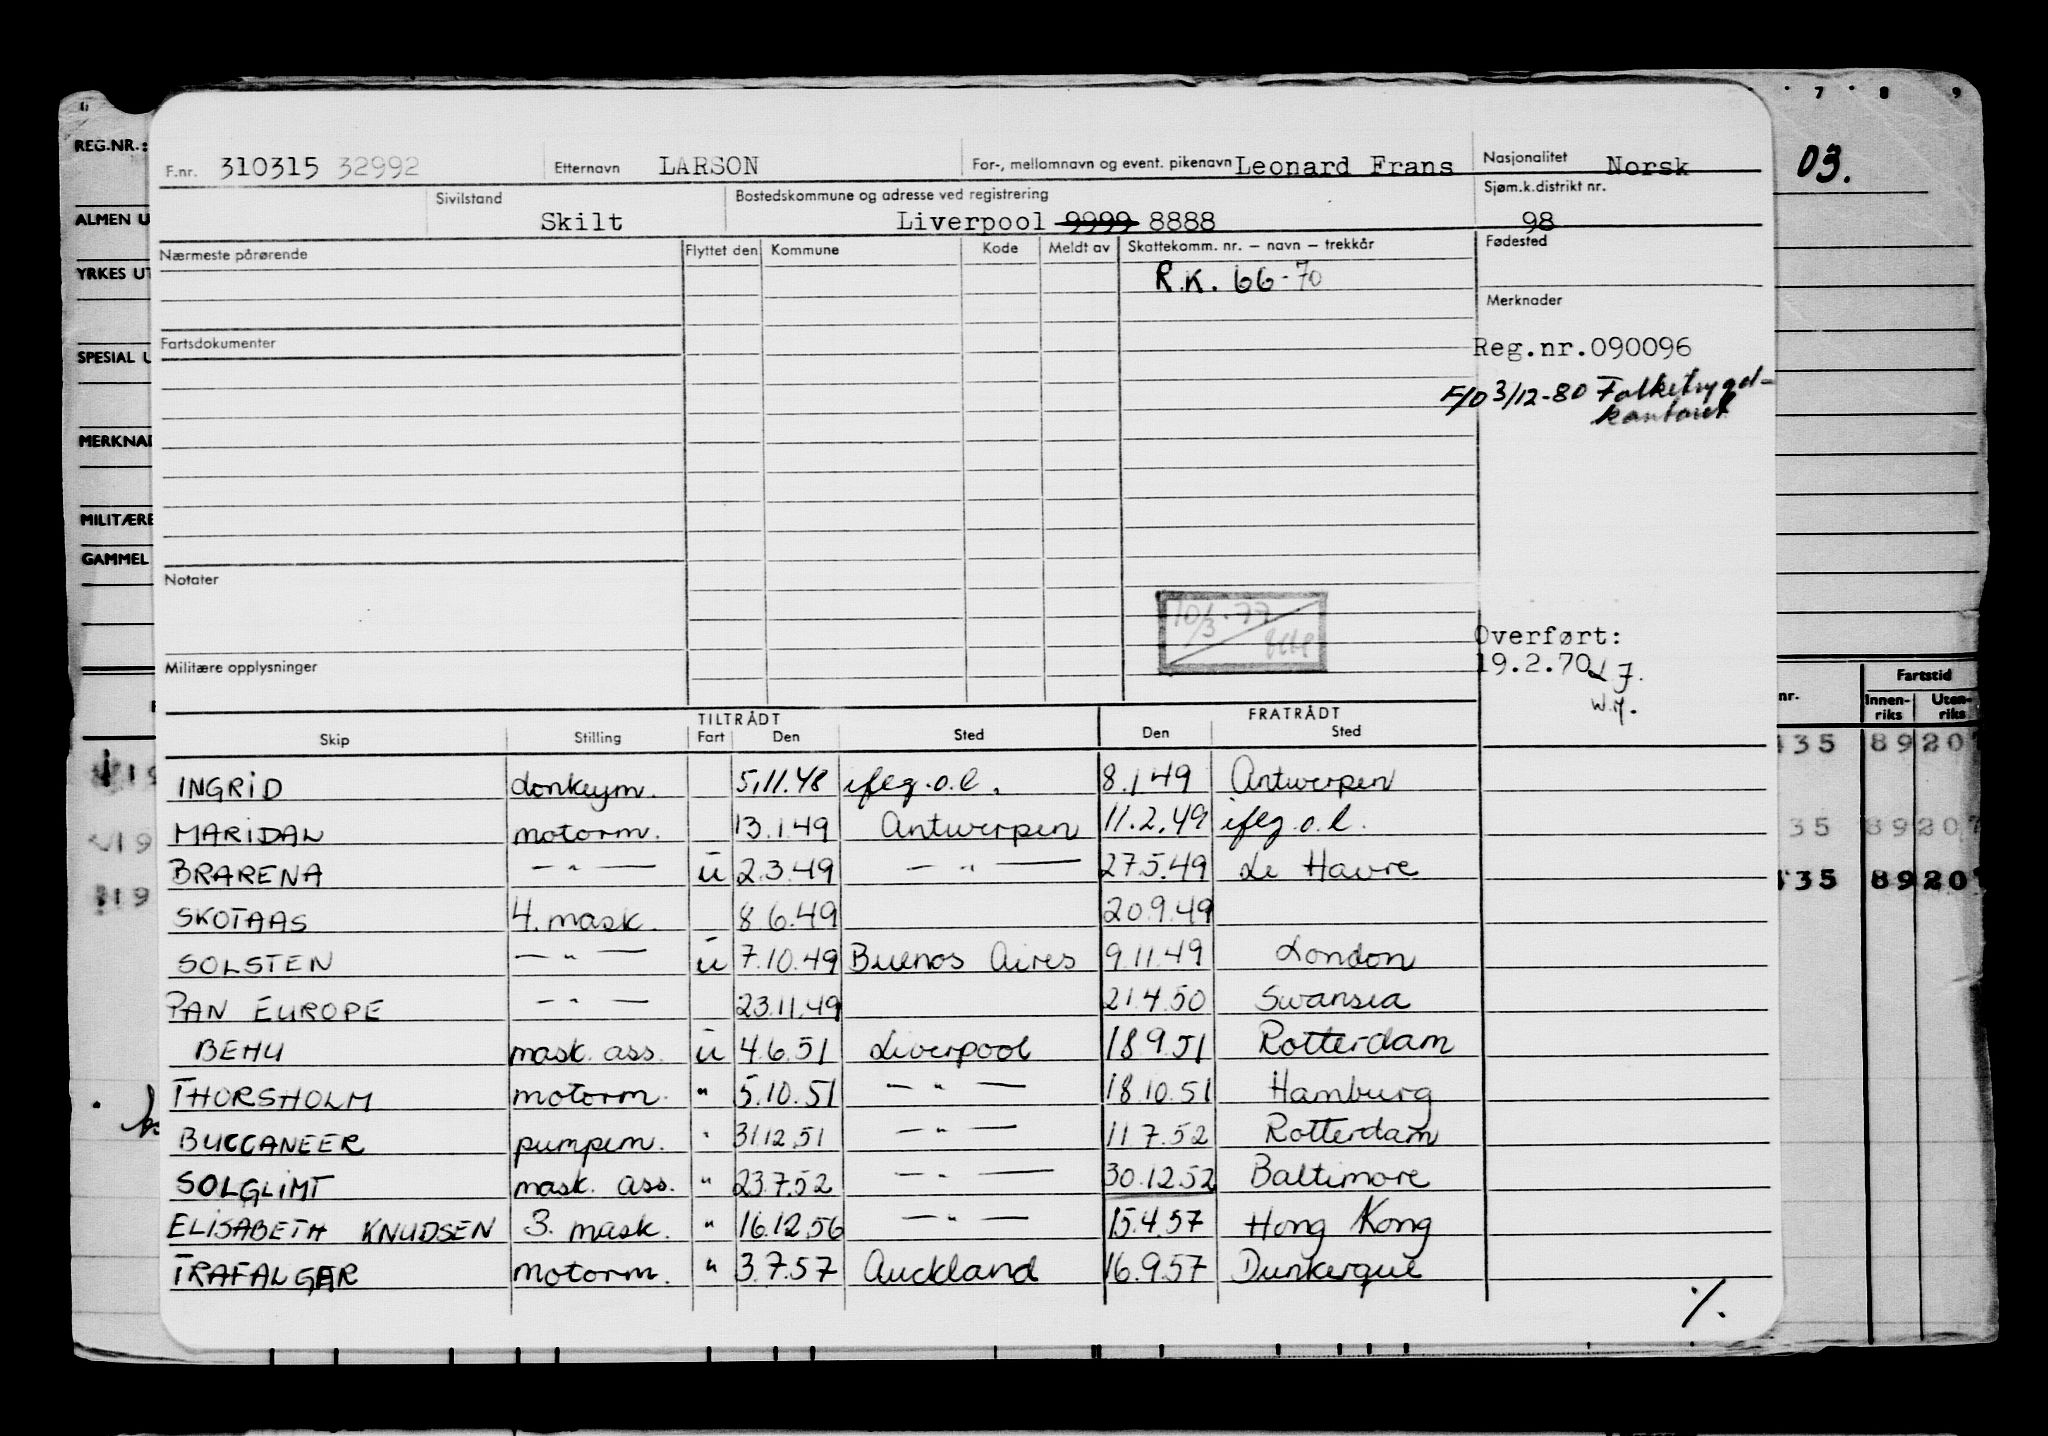 6 7 8 9
REG.NR.: 03.
F.nr. 310315 32992 Etternavn LARSON For-, mellomnavn og event. pikenavn Leonard Frans Nasjonalitet Norsk
ALMEN U Sivilstand Skilt Bostedskommune og adresse ved registrering Liverpool 9999 8888 Sjøm.k.distrikt nr. 98
Nærmeste pårørende Flyttet den Kommune Kode Meldt av Skattekomm. nr. – navn – trekkår Fødested
YRKES UT R.K. 66-70
Merknader
Fartsdokumenter Reg.nr.090096
SPESIAL U
F/D 3/12-80 Folketrygd-
kontoret
MERKNAD
MILITÆRE
GAMMEL
Notater
10/3-77
Overført:
Militære opplysninger 19.2.70 LJ.
W.J.
nr. Fartstid
Innen-riks Uten-riks
TILTRÅDT FRATRÅDT
Skip Stilling Fart Den Sted Den Sted
INGRID donkeym. 5.11.48 iflg.o.l. 8.1.49 Antwerpen
MARIDAN motorm. 13.1.49 Antwerpen 11.2.49 iflg.o.l.
BRARENA — " — u 2.3.49 — " — 27.5.49 Le Havre
SKOTAAS 4. mask. 8.6.49 20.9.49
SOLSTEN — " — u 7.10.49 Buenos Aires 9.11.49 London
PAN EUROPE — " — 23.11.49 21.4.50 Swansea
BEHU mask. ass. u 4.6.51 Liverpool 18.9.51 Rotterdam
THORSHOLM motorm. " 5.10.51 — " — 18.10.51 Hamburg
BUCCANEER pumpem. " 31.12.51 — " — 11.7.52 Rotterdam
SOLGLIMT mask. ass. " 23.7.52 — " — 30.12.52 Baltimore
ELISABETH KNUDSEN 3. mask. " 16.12.56 — " — 15.4.57 Hong Kong
TRAFALGAR motorm. " 3.7.57 Auckland 16.9.57 Dunkerque
135 89 207
35 89 207
135 89 207
./.